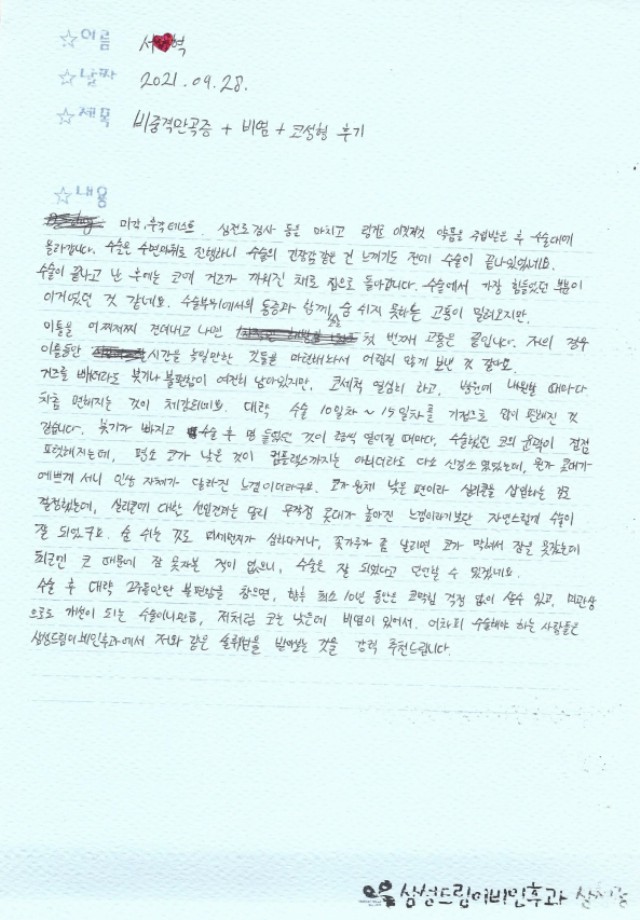 ☆이름 서♥혁
☆날짜 2021.09.28.
☆제목 비중격만곡증 + 비염 + 코성형 후기
☆내용
미각, 후각 테스트, 심전도 검사 등을 마치고 링겔로 이것저것 약품을 주입받은 후 수술대에
올라갑니다. 수술은 수면마취로 진행하니 수술의 긴장감 같은 건 느끼기도 전에 수술이 끝나있었네요.
수술이 끝나고 난 후에는 코에 거즈가 끼워진 채로 집으로 돌아갑니다. 수술에서 가장 힘들었던 부분이
이거였던 것 같네요. 수술부위에서의 통증과 함께 코로 숨 쉬지 못하는 고통이 밀려오지만,
이틀을 어찌저찌 견뎌내고 나면 첫 번째 고통은 끝입니다. 저의 경우
이틀동안 시간을 녹일만한 것들을 마련해놔서 어렵지 않게 보낸 것 같아요.
거즈를 빼더라도 붓기나 불편함이 여전히 남아있지만, 코세척 열심히 하고, 병원에 내원할 때마다
차츰 편해지는 것이 체감되네요. 대략 수술 10일차 ~ 15일차를 기점으로 많이 편해진 것
같습니다. 붓기가 빠지고 수술 후 멍 들었던 것이 조금씩 옅어질 때마다, 수술했던 코의 윤곽이 점점
또렷해지는데, 평소 코가 낮은 것이 컴플렉스까지는 아니더라도 다소 신경쓰였었는데, 뭔가 콧대가
예쁘게 서니 인상 자체가 달라진 느낌이더라구요. 코가 원체 낮은 편이라 실리콘을 삽입하는 걸로
결정했는데, 실리콘에 대한 선입견과는 달리 무작정 콧대가 높아진 느낌이라기보단 자연스럽게 수술이
잘 되었구요. 숨 쉬는 것도 미세먼지가 심하다거나, 꽃가루가 좀 날리면 코가 막혀서 잠을 못잤는데
최근엔 코 때문에 잠 못자본 적이 없으니, 수술은 잘 되었다고 단언할 수 있겠네요.
수술 후 대략 2주동안만 불편함을 참으면, 향후 최소 10년 동안은 코막힘 걱정 없이 살수 있고, 미관상
으로도 개선이 되는 수술이니만큼, 저처럼 코는 낮은데 비염이 있어서, 어차피 수술해야 하는 사람들은
삼성드림이비인후과에서 저와 같은 솔루션을 받아보는 것을 강력 추천드립니다.
삼성드림이비인후과